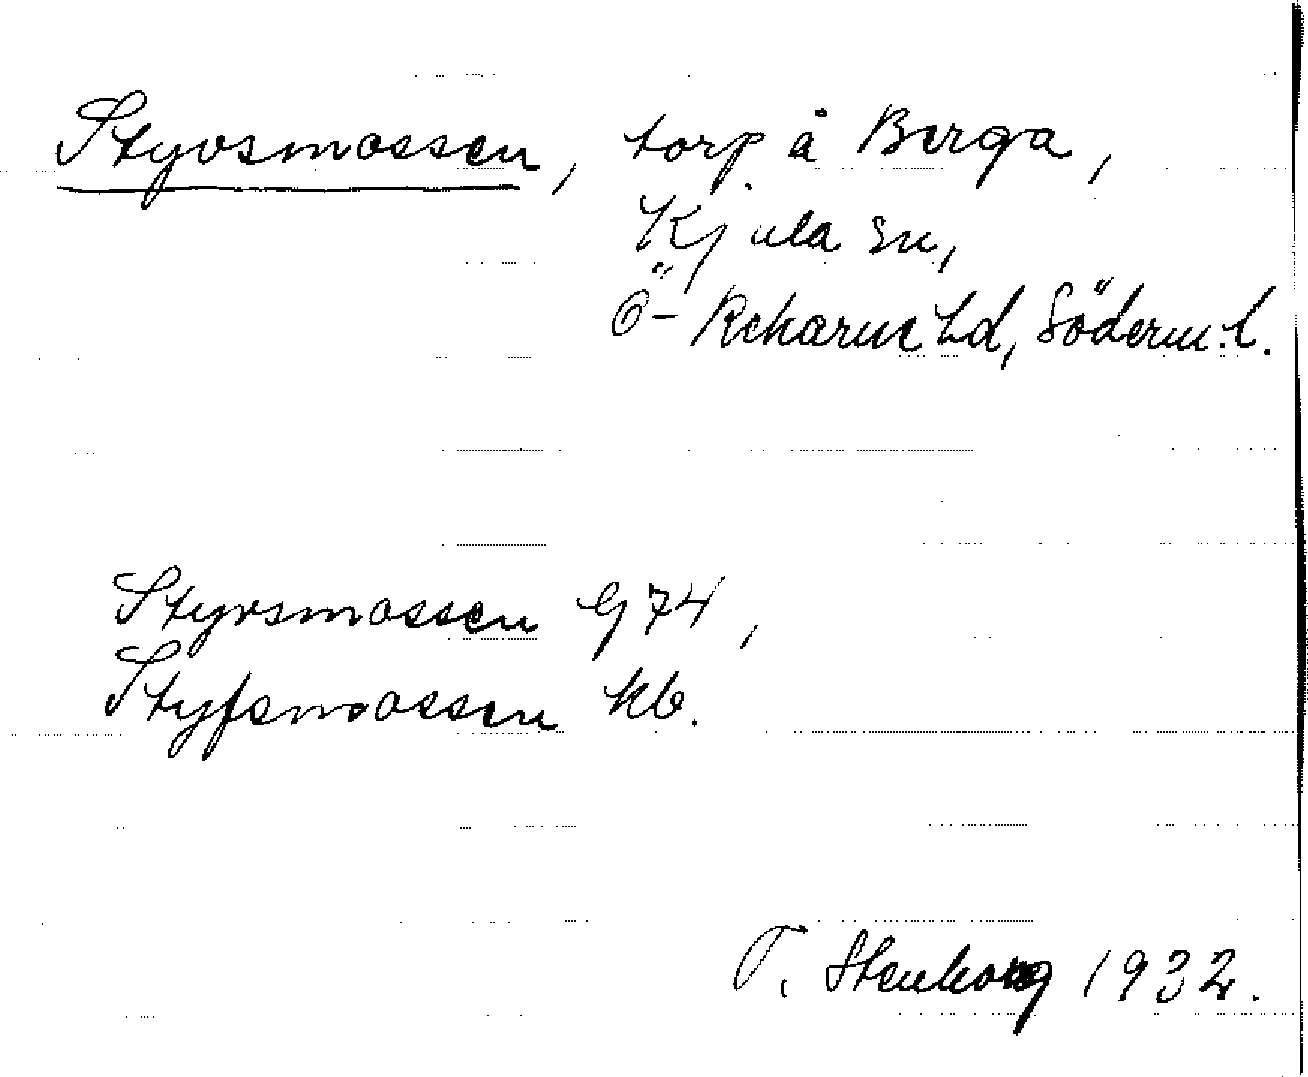 Styvsmossen, torp å Berga,
Kjula sn,
Ö-Rekarne hd, Söderm. l.
Styvsmossen G 74,
Styfsmossen kb.
T. Stenborg 1932.